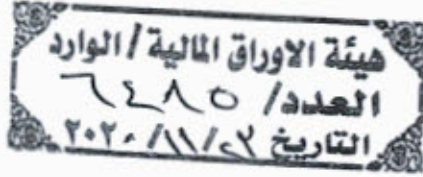 هيئة الاوراق المالية / الوارد
العدد/ ٦٤٨٥
التاريخ ٢٣/ ١١/ ٢٠٢٠